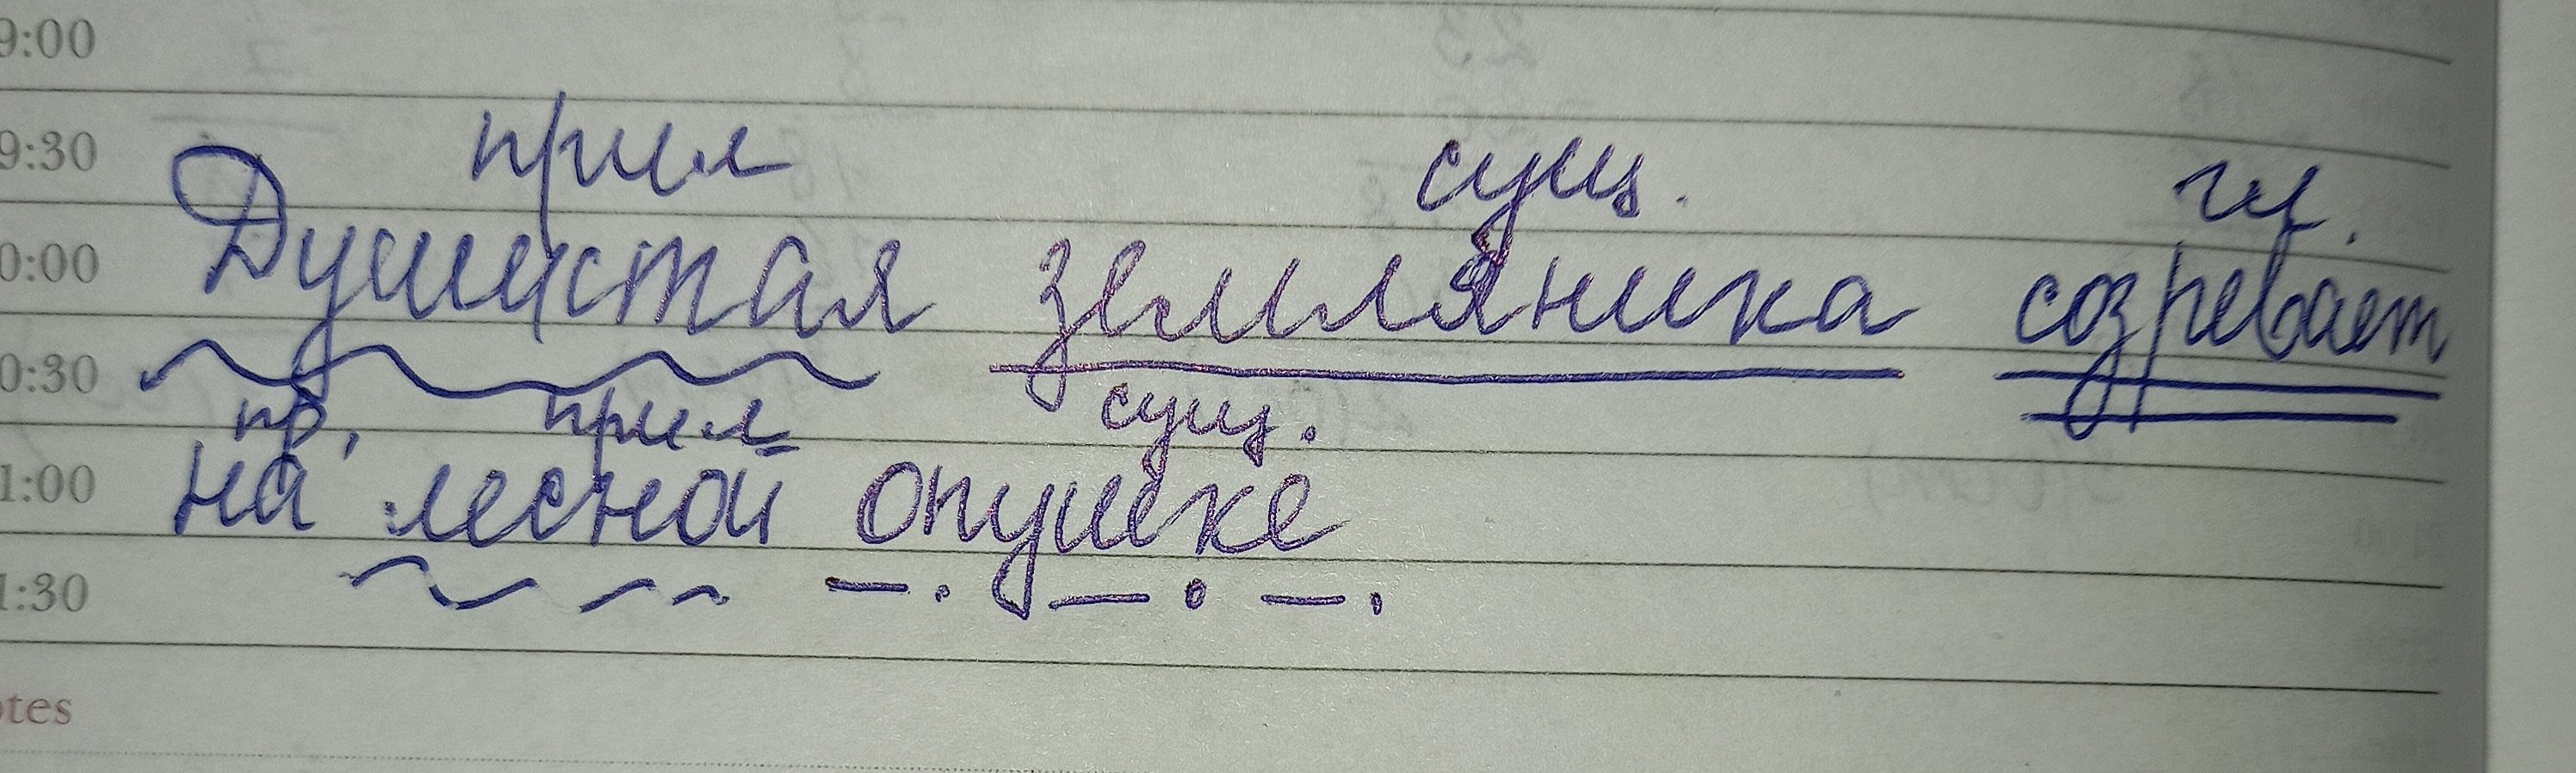 9:00
9:30
прил сущ. гл.
0:00
Душистая земляника созревает
0:30
пр. прил сущ.
1:00
на лесной опушке
1:30
otes